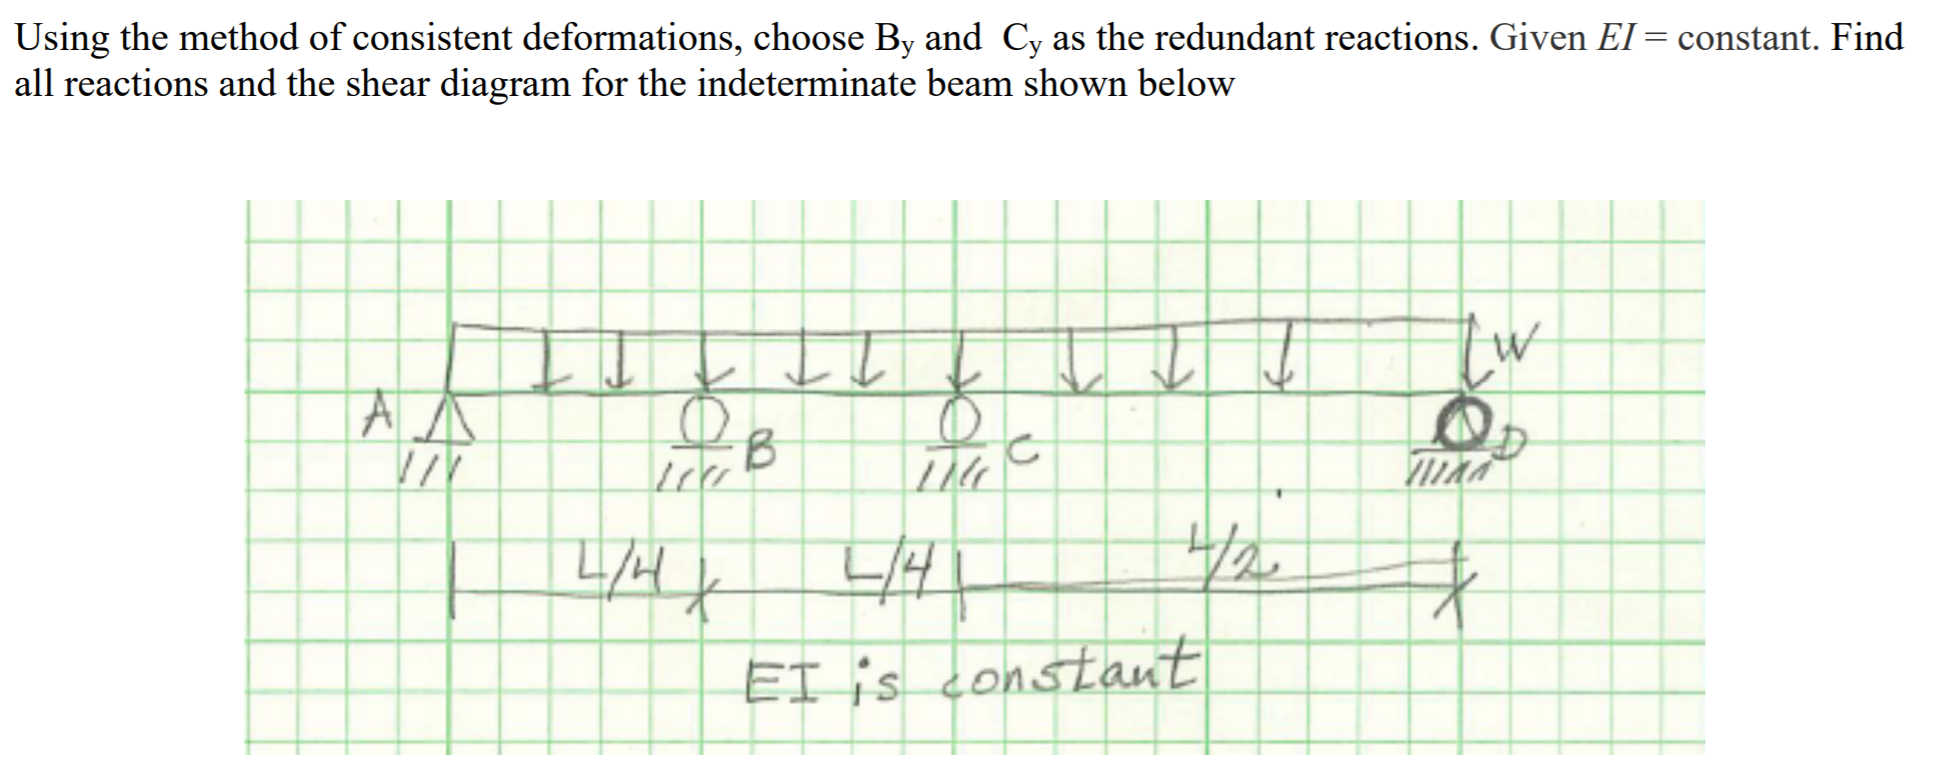 Using the method of consistent deformations, choose By and Cy as the redundant reactions. Given EI = constant. Find
all reactions and the shear diagram for the indeterminate beam shown below
W
A
B
C
D
L/4 L/4 L/2
EI is constant